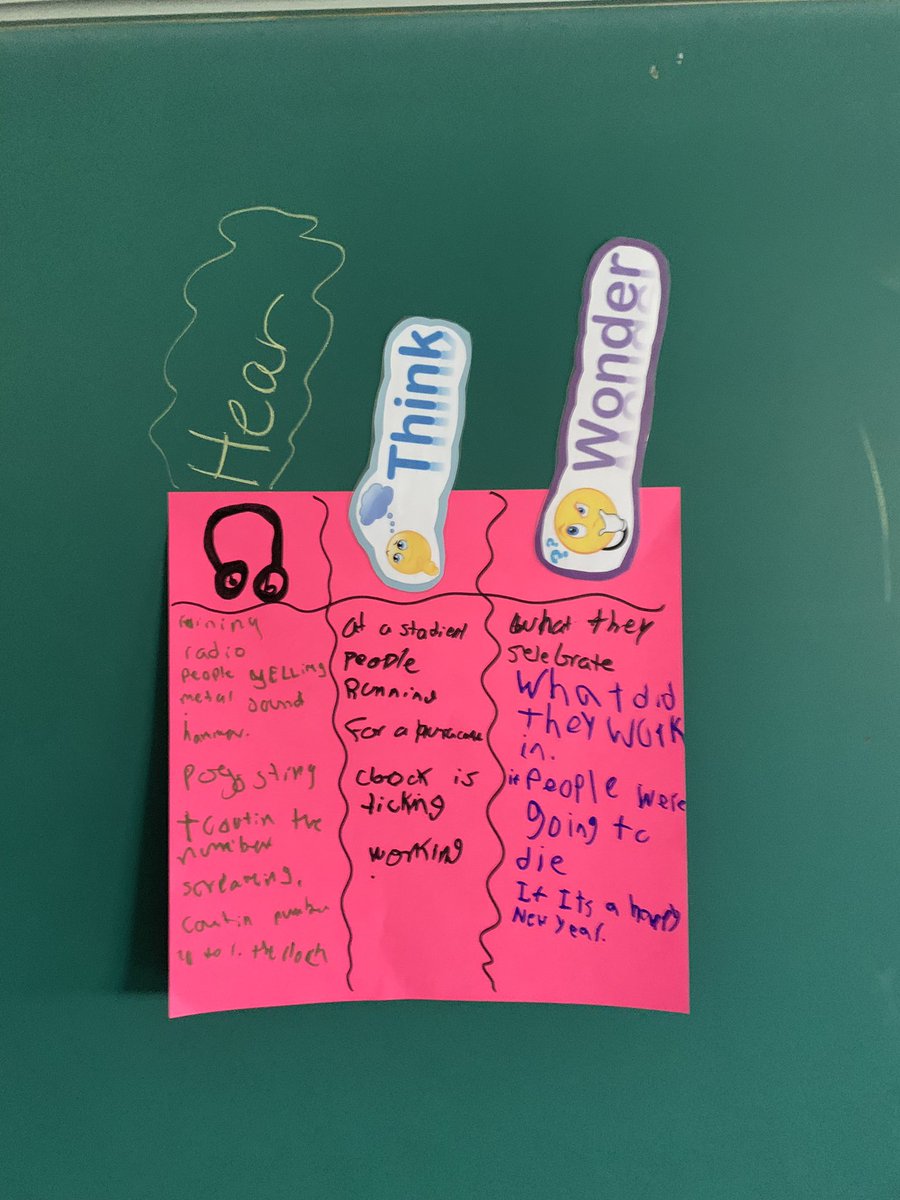 Hear
Think
Wonder
???
raining
radio
People yELLing
metal sound
hammer.
sting
the
number
screaming,
number
up to 1. the
at a stadient
People
Running
For a
cloock is
ticking
working
what they
selebrate
What did
they work
in.
if People were
going to
die
If Its a happy
New year.